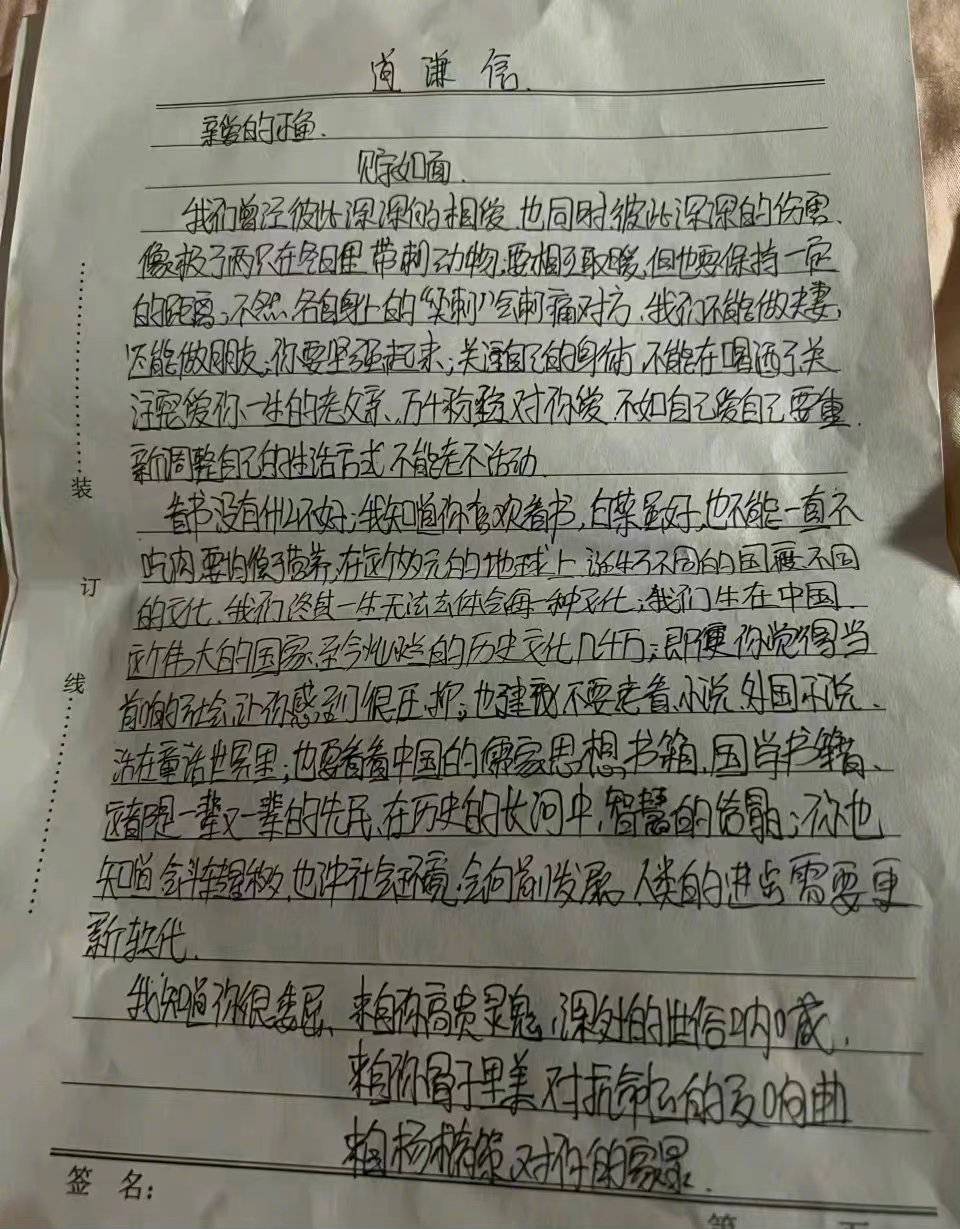 道谦信.
亲爱的正鱼.
见字如面.
我们曾经彼此深深的相爱.也同时彼此深深的伤害.
像极了两只在冬日里带刺动物,要相互取暖,但也要保持一定
的距离,不然.各自身上的“尖刺”会刺痛对方.我们不能做夫妻,
还能做朋友,你要坚强起来;关注自己的身体,不能在喝酒了关
注疼爱你一生的老父亲.万千粉丝对你爱不如自己爱自己要重
新调整自己的生活方式不能老不活动
看书没有什么不好;我知道你喜欢看书,白菜虽好,也不能一直不
吃肉要均衡营养,在这个多元的地球上,诞生了不同的国度不同
的文化.我们终其一生无法去体会每一种文化;我们生在中国.
这个伟大的国家.至今灿烂的历史文化几千万;即便你觉得当
前的社会,让你感到很压抑;也建议不要老看小说.外国小说.
活在童话世界里;也要看看中国的儒家思想书籍.国学书籍.
这都是一辈又一辈的先民,在历史的长河中,智慧的给融;你也
知道会斗转星移,也冲社会环境,会向前发展.人类的进步需要更
新软代.
我知道你很委屈.来自你高贵灵魂,深处的世俗呐喊.
来自你骨子里美对抗命运的交响曲
来自杨楠策对你的
签 名:
第 页
装
订
线